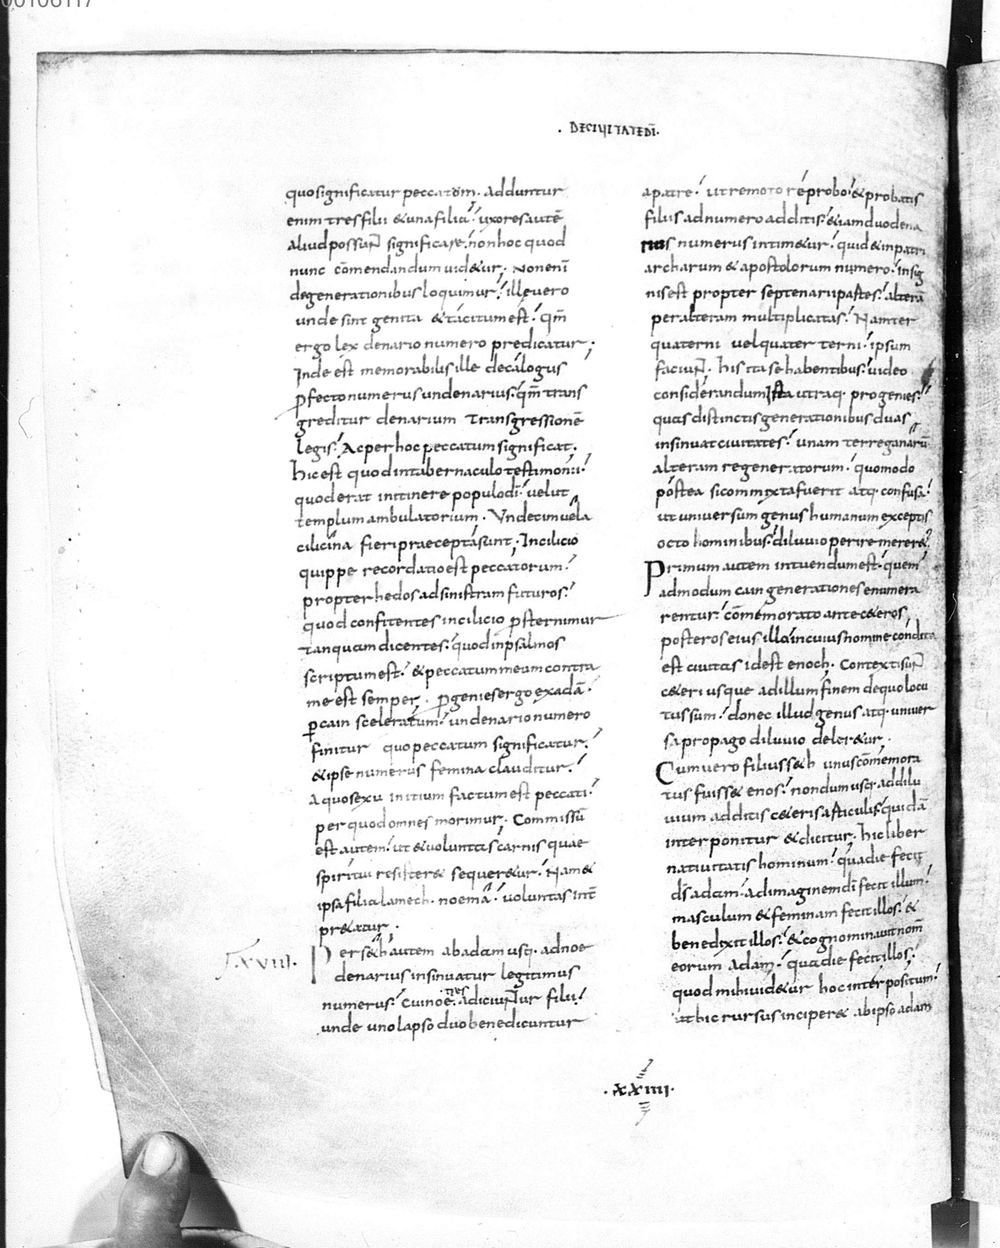 00106117
· DECIUITATEDĪ ·
quosignificatur peccatum. Adduntur
enim tresfilii &unafilia; uxoresautē
aliud possunt significare; nonhoc quod
nunc cōmendandum uid&ur. Nonenī
degenerationibus loquimur; illeuero
unde sint genita &tacitumest; qm̄
ergo lex denario numero predicatur;
Inde est memorabilis ille decalogus
pfectonumerus undenarius; qm̄ trans
greditur denarium Transgressionē
legis; Acperhoc peccatum significat.
hicest quodintabernaculo testimonii;
quoderat initinere populodī; uelut
templum ambulatorium. Undecim uela
cilicina fieripraeceptasunt; Incilicio
quippe recordatioest peccatorum;
propter hedos adsinistram futuros;
quod confitentes incilicio psternimur
tanquam dicentes; quodinpsalmos
scriptumest; &peccatummeum contra
me est semper. pgeniesergo exadā;
pcain sceleratum; undenarionumero
finitur quopeccatum significatur;
&ipse numerus femina clauditur;
Aquosexu initium factumest peccati;
per quod omnes morimur. Commissū
est autem; ut &uoluntas carnis quae
spiritui resister& sequer&ur; Nam&
ipsa filia lamech. noema; uoluntas int̄
pr&atur.
Perseth autem abadam usq. adnoe
denarius insinuatur legitimus
numerus; Cuinoe tres adiciuntur filii;
unde unolapso duobenedicuntur
xviii.
apatre; utremoto reprobo; &probatis
filiis adnumero additis; &iamduodena
rius numerus intim&ur; quid&inpatri
archarum & apostolorum numero; insig
nisest propter septenariipartes; alterā
peralteram multiplicatas; Namter
quaterni uelquater terni; ipsum
faciunt. his ita se habentibus; uideo
considerandum Ista utraq. progenies;
quas distinctis generationibus duas
insinuat ciuitates; unam terreganarū
alteram regeneratorum; quomodo
postea sicommixtafuerit atq. confusa;
ut uniuersum genus humanum exceptis
octo hominibus; diluuio perire merer&;
Primum autem intuendumest; quem
admodum cum generationes enumera
rentur; cōmemorato ante c&eros
posteros eius illo incuiusnomine condita
est ciuitas idest enoch. Contextisunt
c&eri usque adillum finem dequolocu
tus sum; donec illud genus atq. uniuer
sa propago diluuio deler&ur.
Cumuero filiusseth unuscōmemora
tus fuiss& enos; nondum usq. addilu
uium additis c&eris articulis quidā
interponitur &dicitur. hicliber
natiuitatis hominum; quadie fecit
ds̄ adam; adimaginemdī fecit illum;
masculum & feminam fecit illos; &
benedixit illos; &cognominauit nom̄
eorum Adam; quadie fecitillos;
quod mihiuid&ur hoc interpositum;
ut hic rursus inciper& abipso adam
· xxiiii ·